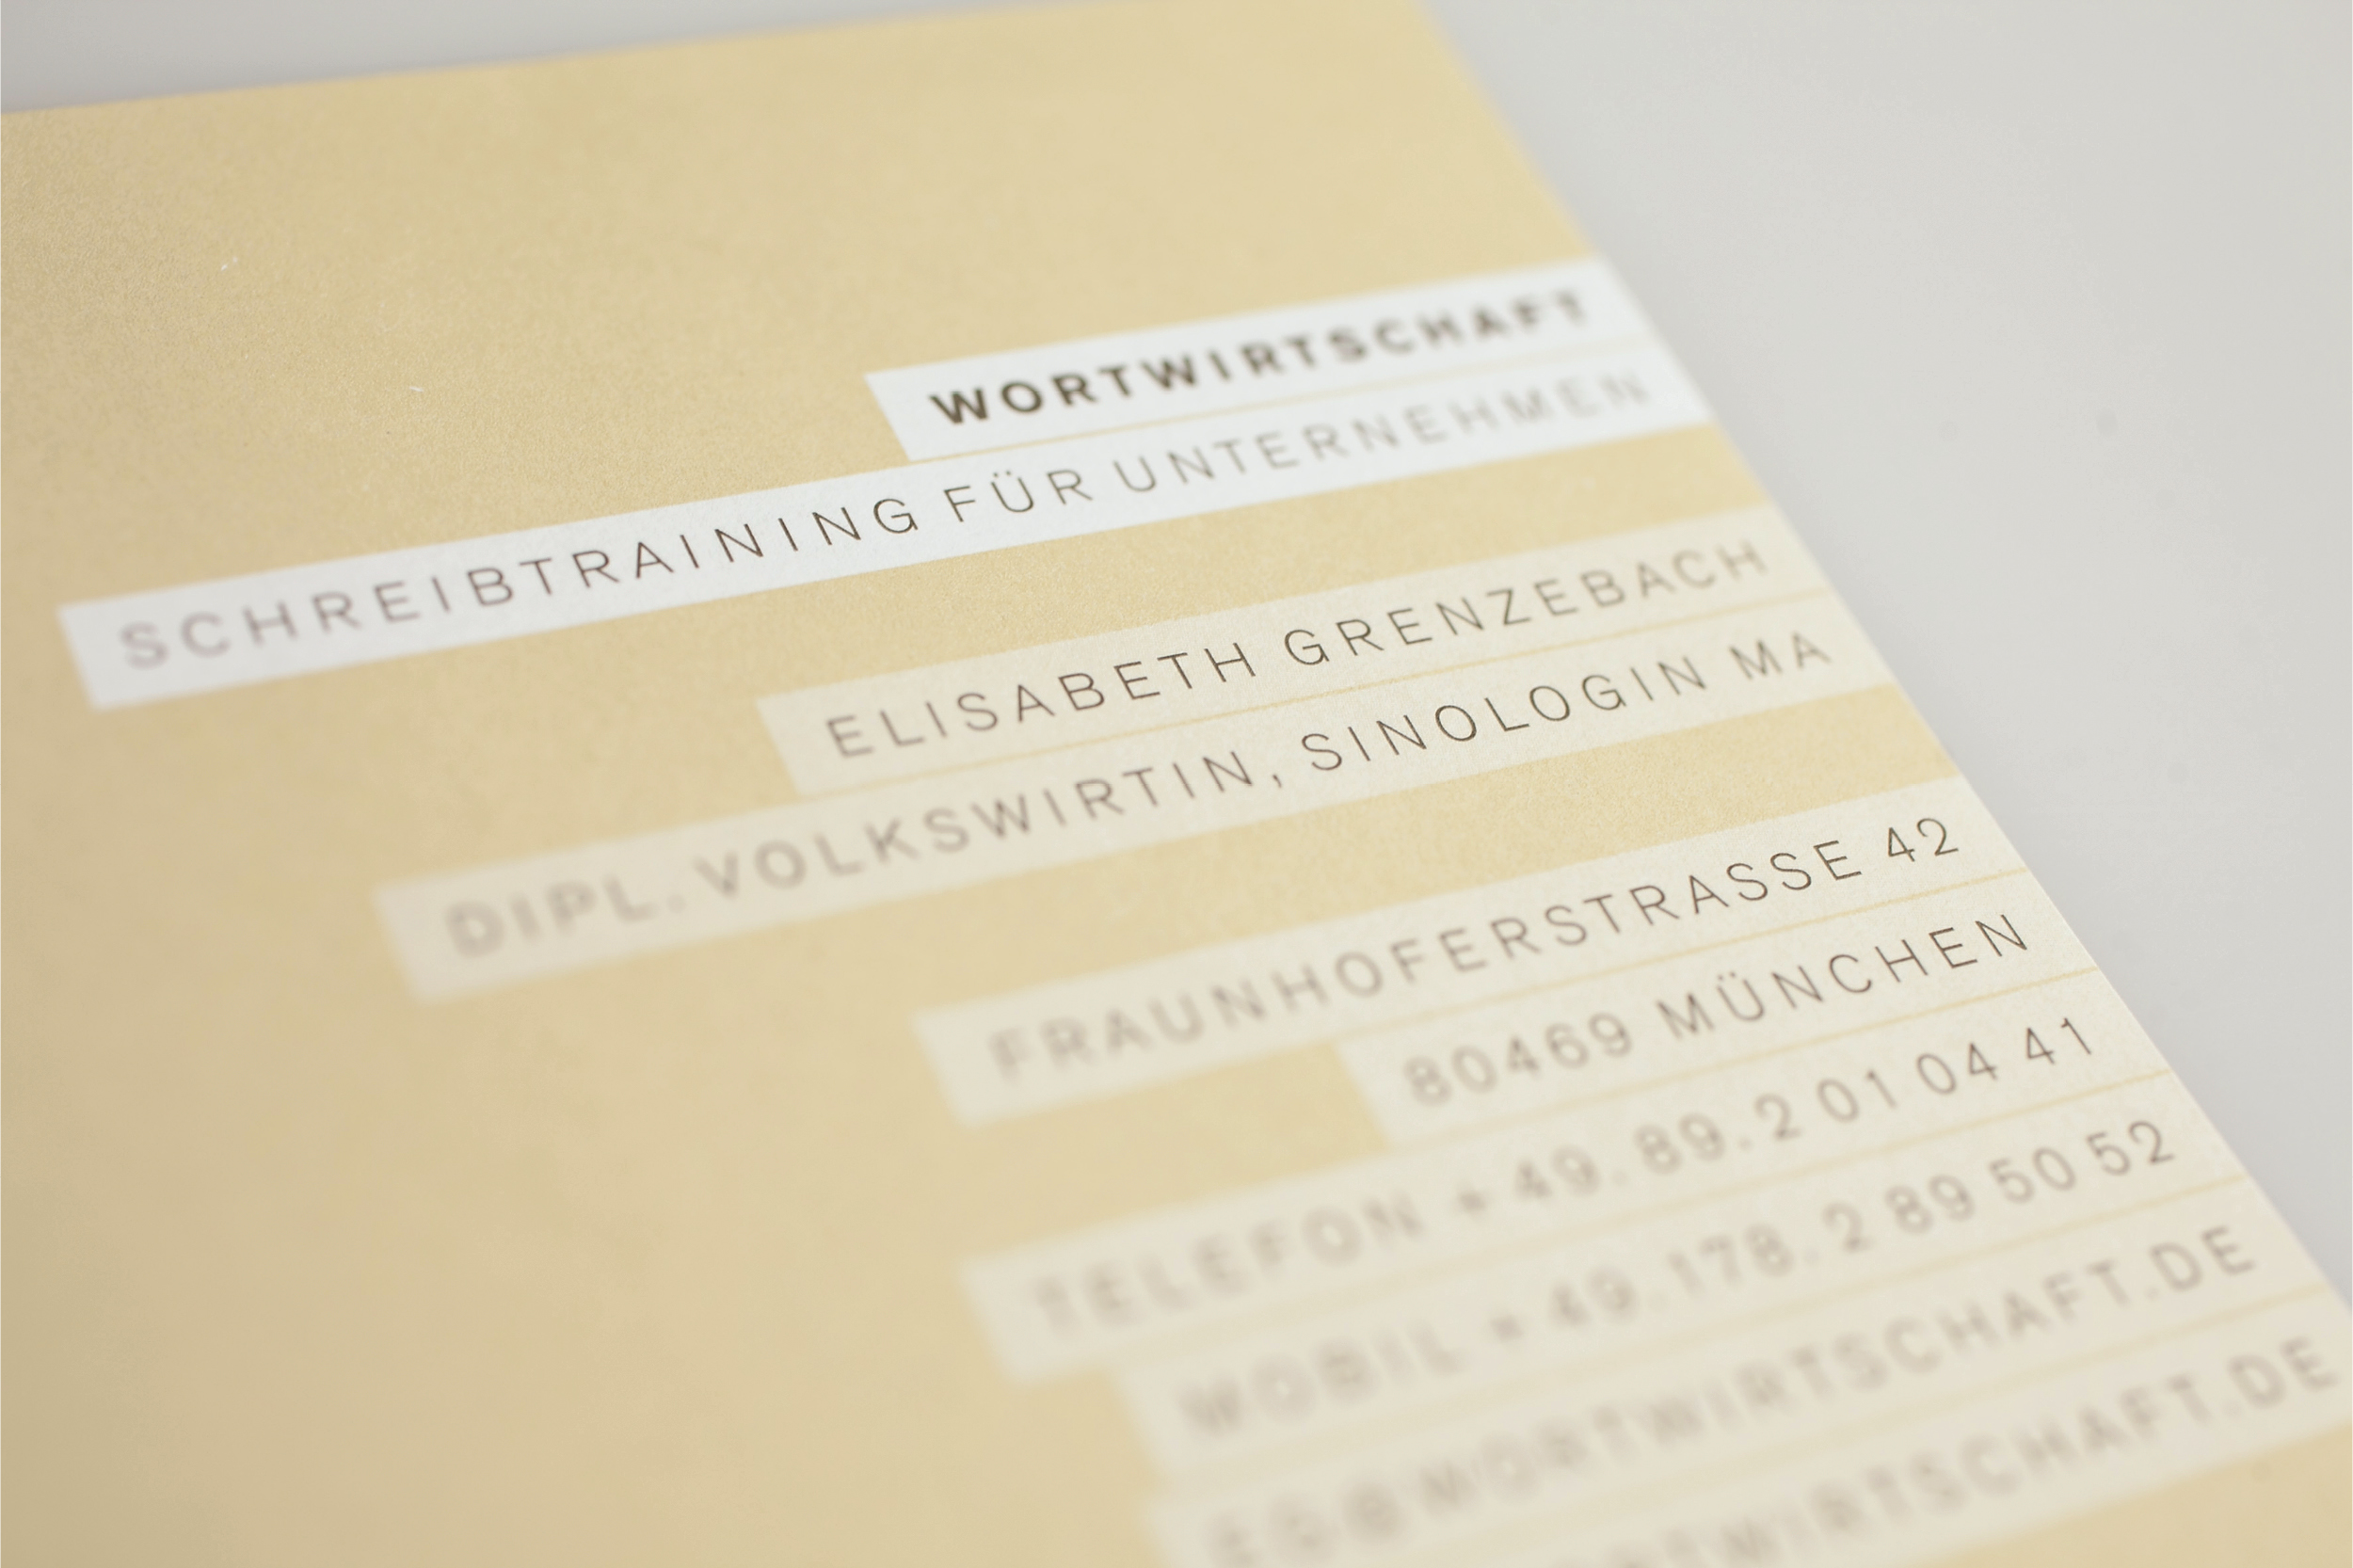 WORTWIRTSCHAFT
SCHREIBTRAINING FÜR UNTERNEHMEN
ELISABETH GRENZEBACH
DIPL. VOLKSWIRTIN, SINOLOGIN MA
FRAUNHOFERSTRASSE 42
80469 MÜNCHEN
TELEFON +49.89.2 01 04 41
MOBIL +49.178.2 89 50 52
EG@WORTWIRTSCHAFT.DE